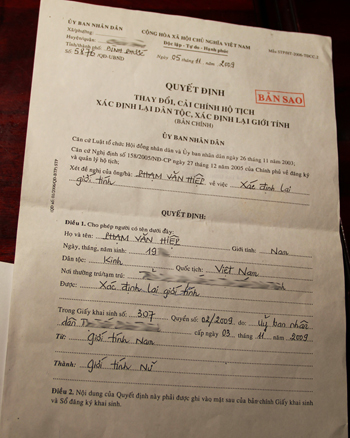 ỦY BAN NHÂN DÂN
Xã/phường:
Huyện/quận:
Tỉnh/thành phố:
Số: 5876 /QĐ-UBND
CỘNG HÒA XÃ HỘI CHỦ NGHĨA VIỆT NAM
Độc lập - Tự do - Hạnh phúc
Ngày 05 tháng 11 năm 2009
QUYẾT ĐỊNH
THAY ĐỔI, CẢI CHÍNH HỘ TỊCH
XÁC ĐỊNH LẠI DÂN TỘC, XÁC ĐỊNH LẠI GIỚI TÍNH
(BẢN CHÍNH)
BẢN SAO
ỦY BAN NHÂN DÂN
Căn cứ Luật tổ chức Hội đồng nhân dân và Ủy ban nhân dân ngày 26 tháng 11 năm 2003;
Căn cứ Nghị định số 158/2005/NĐ-CP ngày 27 tháng 12 năm 2005 của Chính phủ về đăng ký
và quản lý hộ tịch,
Xét đề nghị của ông/bà: PHẠM VĂN HIỆP về việc Xác định lại
giới tính
QUYẾT ĐỊNH:
Điều 1. Cho phép người có tên dưới đây:
Họ và tên: PHẠM VĂN HIỆP Giới tính: Nam
Ngày, tháng, năm sinh: 19
Dân tộc: Kinh Quốc tịch: Việt Nam
Nơi thường trú/tạm trú:
Được: Xác định lại giới tính
Trong Giấy khai sinh số: 307 Quyển số: 02/2009 do: Ủy ban nhân
dân cấp ngày 03 tháng 11 năm 2009
Từ: giới tính Nam
Thành: giới tính Nữ
Điều 2. Nội dung của Quyết định này phải được ghi vào mặt sau của bản chính Giấy khai sinh
và Sổ đăng ký khai sinh.